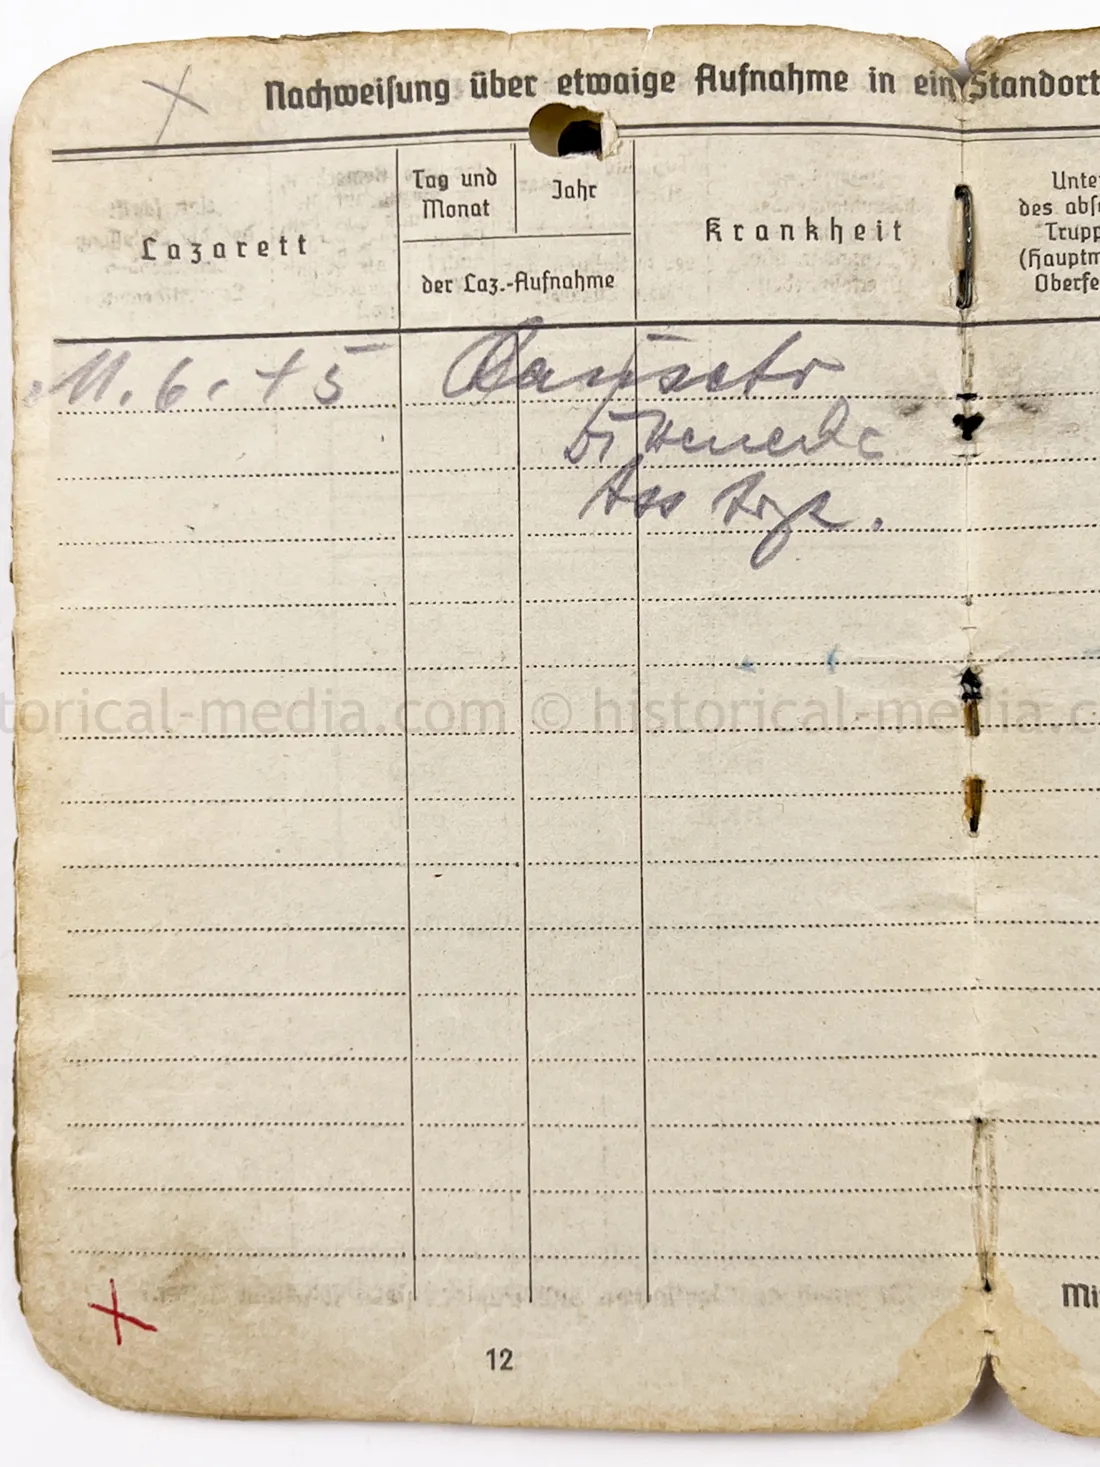 Nachweisung über etwaige Aufnahme in ein Standort
Lazarett
Tag und
Monat
Jahr
der Laz.-Aufnahme
Krankheit
Unte
des abs
Trupp
(Hauptm
Oberfe
11. 6. 45
historical-media.com © historical-media.c
Mi
12